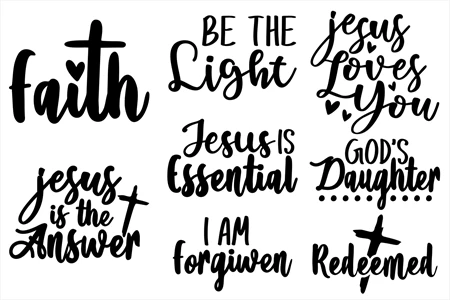 faith
BE THE
Light
jesus
Loves
You
Jesus IS
Essential
GOD'S
Daughter
jesus
is the
Answer
I AM
forgiven
Redeemed